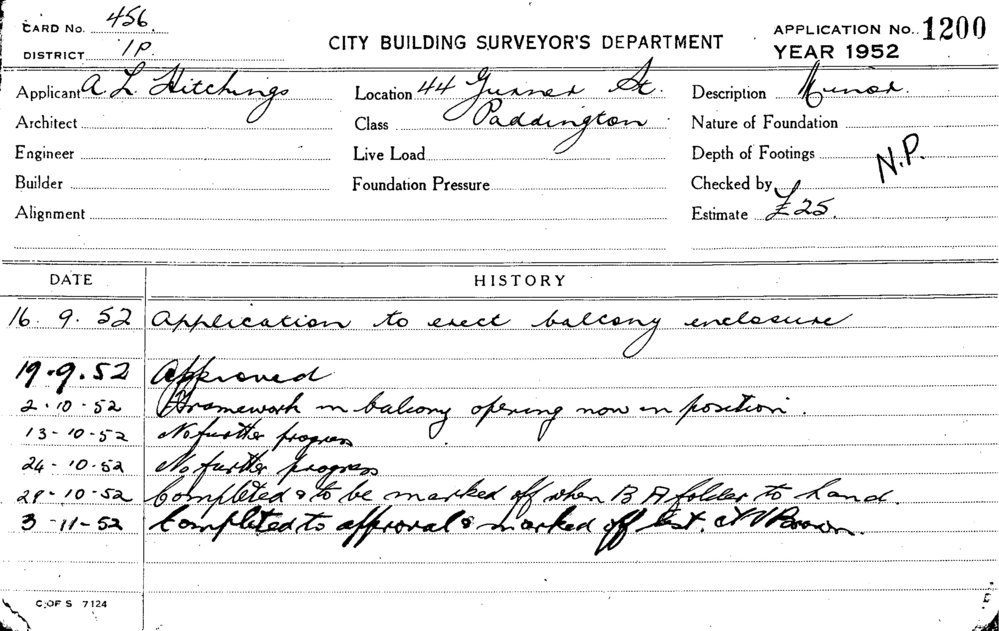 CARD No. 456.
DISTRICT 1P.
CITY BUILDING SURVEYOR'S DEPARTMENT
APPLICATION No. 1200
YEAR 1952
Applicant A L Hitchings
Location 44 Gurner St.
Description Minor.
Architect
Class Paddington
Nature of Foundation
Engineer
Live Load
Depth of Footings
N.P.
Builder
Foundation Pressure
Checked by
Alignment
Estimate £25.
DATE HISTORY
16. 9. 52 Application to erect balcony enclosure
19.9.52 Approved
2-10-52 Framework in balcony opening now in position.
13-10-52 No further progress
24-10-52 No further progress
29-10-52 Completed & to be marked off when B A folder to hand.
3-11-52 Completed to approval & marked off list. Brown.
C. OF S 7124